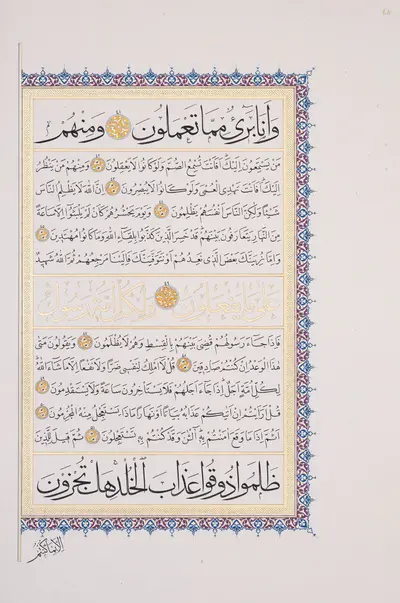 وَأَنَا بَرِيءٌ مِمَّا تَعْمَلُونَ ۝ وَمِنْهُمْ
مَنْ يَسْتَمِعُونَ إِلَيْكَ أَفَأَنْتَ تُسْمِعُ الصُّمَّ وَلَوْ كَانُوا لَا يَعْقِلُونَ ۝ وَمِنْهُمْ مَنْ يَنْظُرُ
إِلَيْكَ أَفَأَنْتَ تَهْدِي الْعُمْيَ وَلَوْ كَانُوا لَا يُبْصِرُونَ ۝ إِنَّ اللَّهَ لَا يَظْلِمُ النَّاسَ
شَيْئًا وَلَكِنَّ النَّاسَ أَنْفُسَهُمْ يَظْلِمُونَ ۝ وَيَوْمَ يَحْشُرُهُمْ كَأَنْ لَمْ يَلْبَثُوا إِلَّا سَاعَةً
مِنَ النَّهَارِ يَتَعَارَفُونَ بَيْنَهُمْ قَدْ خَسِرَ الَّذِينَ كَذَّبُوا بِلِقَاءِ اللَّهِ وَمَا كَانُوا مُهْتَدِينَ ۝
وَإِمَّا نُرِيَنَّكَ بَعْضَ الَّذِي نَعِدُهُمْ أَوْ نَتَوَفَّيَنَّكَ فَإِلَيْنَا مَرْجِعُهُمْ ثُمَّ اللَّهُ شَهِيدٌ
عَلَى مَا يَفْعَلُونَ ۝ وَلِكُلِّ أُمَّةٍ رَسُولٌ
فَإِذَا جَاءَ رَسُولُهُمْ قُضِيَ بَيْنَهُمْ بِالْقِسْطِ وَهُمْ لَا يُظْلَمُونَ ۝ وَيَقُولُونَ مَتَى
هَذَا الْوَعْدُ إِنْ كُنْتُمْ صَادِقِينَ ۝ قُلْ لَا أَمْلِكُ لِنَفْسِي ضَرًّا وَلَا نَفْعًا إِلَّا مَا شَاءَ اللَّهُ
لِكُلِّ أُمَّةٍ أَجَلٌ إِذَا جَاءَ أَجَلُهُمْ فَلَا يَسْتَأْخِرُونَ سَاعَةً وَلَا يَسْتَقْدِمُونَ ۝
قُلْ أَرَأَيْتُمْ إِنْ أَتَاكُمْ عَذَابُهُ بَيَاتًا أَوْ نَهَارًا مَاذَا يَسْتَعْجِلُ مِنْهُ الْمُجْرِمُونَ ۝
أَثُمَّ إِذَا مَا وَقَعَ آمَنْتُمْ بِهِ آلْآنَ وَقَدْ كُنْتُمْ بِهِ تَسْتَعْجِلُونَ ۝ ثُمَّ قِيلَ لِلَّذِينَ
ظَلَمُوا ذُوقُوا عَذَابَ الْخُلْدِ هَلْ تُجْزَوْنَ
إلا بما كنتم